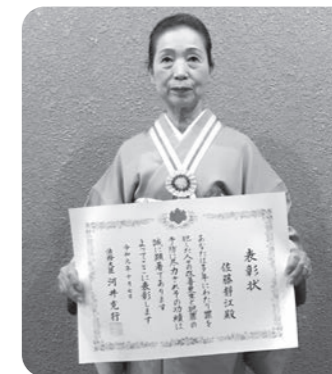 表彰状
佐藤静江殿
あなたは多年にわたり罪を
犯した人々の改善更生と犯罪の
予防に尽力されその功績は
誠に顕著であります
よってここに表彰します
令和元年十月七日
法務大臣 河井克行